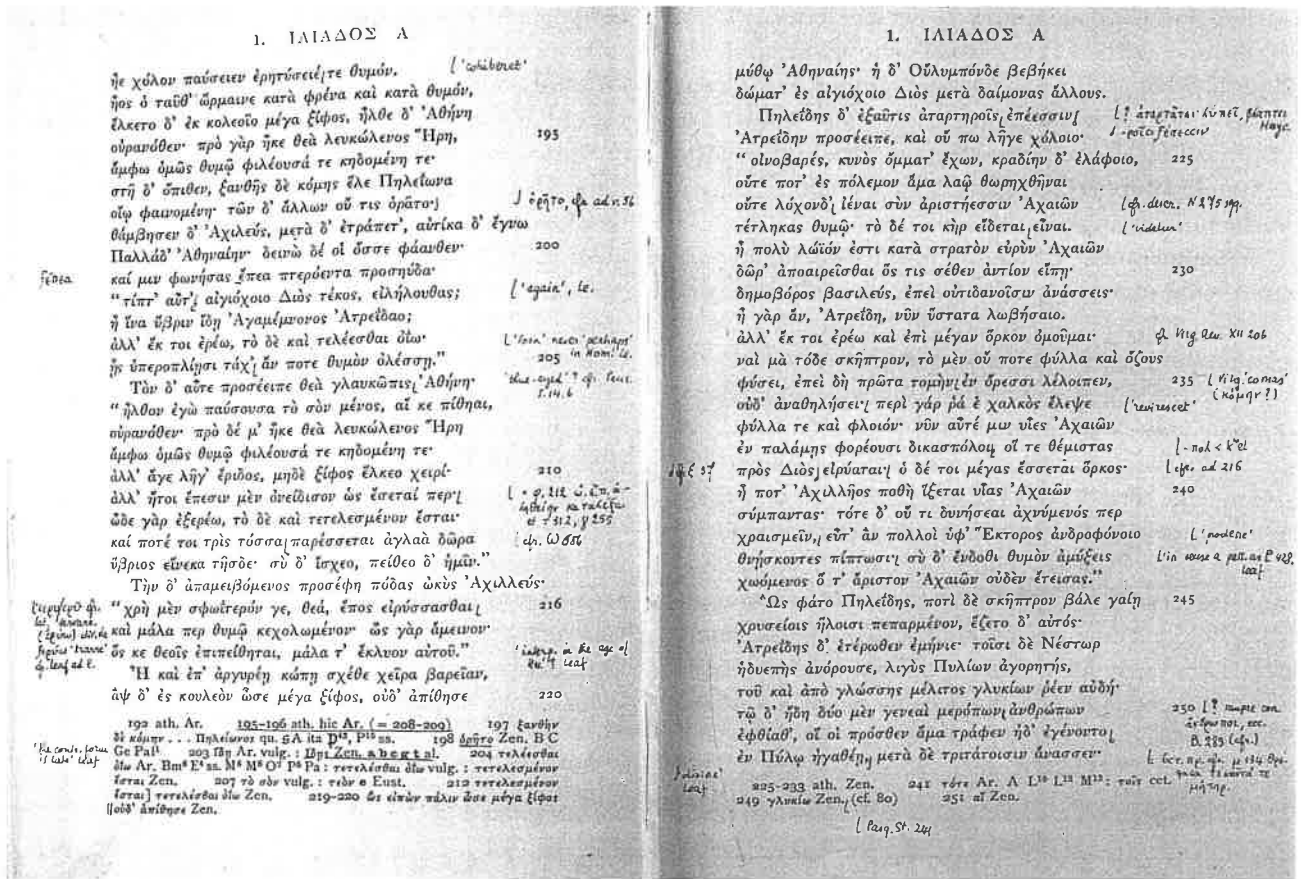 1. ΙΛΙΑΔΟΣ Α
ἠε χόλον παύσειεν ἐρητύσειέ τε θυμόν. 'cohiberet'
ἧος ὁ ταῦθ' ὥρμαινε κατὰ φρένα καὶ κατὰ θυμόν,
ἕλκετο δ' ἐκ κολεοῖο μέγα ξίφος, ἦλθε δ' Ἀθήνη
οὐρανόθεν· πρὸ γὰρ ἧκε θεὰ λευκώλενος Ἥρη, 195
ἄμφω ὁμῶς θυμῷ φιλέουσά τε κηδομένη τε·
στῆ δ' ὄπιθεν, ξανθῆς δὲ κόμης ἕλε Πηλεΐωνα
οἴῳ φαινομένη· τῶν δ' ἄλλων οὔ τις ὁρᾶτο· ὁρῆτο, cfr. ad v. 56
θάμβησεν δ' Ἀχιλεύς, μετὰ δ' ἐτράπετ', αὐτίκα δ' ἔγνω
Παλλάδ' Ἀθηναίην· δεινὼ δέ οἱ ὄσσε φάανθεν· 200
ϝέπεα καί μιν φωνήσας ἔπεα πτερόεντα προσηύδα·
"τίπτ' αὖτ', αἰγιόχοιο Διὸς τέκος, εἰλήλουθας; 'again', Le.
ἦ ἵνα ὕβριν ἴδῃ Ἀγαμέμνονος Ἀτρεΐδαο;
ἀλλ' ἔκ τοι ἐρέω, τὸ δὲ καὶ τελέεσθαι ὀΐω· 'soon' never 'perhaps' in Hom. Le.
ᾗς ὑπεροπλίῃσι τάχ' ἄν ποτε θυμὸν ὀλέσσῃ." 205
Τὸν δ' αὖτε προσέειπε θεὰ γλαυκῶπις Ἀθήνη· 'blue-eyed'? cfr. Paus. 1.14.6
"ἦλθον ἐγὼ παύσουσα τὸ σὸν μένος, αἴ κε πίθηαι,
οὐρανόθεν· πρὸ δέ μ' ἧκε θεὰ λευκώλενος Ἥρη
ἄμφω ὁμῶς θυμῷ φιλέουσά τε κηδομένη τε·
ἀλλ' ἄγε λῆγ' ἔριδος, μηδὲ ξίφος ἕλκεο χειρί· 210
ἀλλ' ἤτοι ἔπεσιν μὲν ὀνείδισον ὡς ἔσεταί περ·
ὧδε γὰρ ἐξερέω, τὸ δὲ καὶ τετελεσμένον ἔσται·
καί ποτέ τοι τρὶς τόσσα παρέσσεται ἀγλαὰ δῶρα cfr. Ω 556
ὕβριος εἵνεκα τῆσδε· σὺ δ' ἴσχεο, πείθεο δ' ἡμῖν."
Τὴν δ' ἀπαμειβόμενος προσέφη πόδας ὠκὺς Ἀχιλλεύς·
"χρὴ μὲν σφωΐτερόν γε, θεά, ἔπος εἰρύσσασθαι 216
καὶ μάλα περ θυμῷ κεχολωμένον· ὧς γὰρ ἄμεινον·
ὅς κε θεοῖς ἐπιπείθηται, μάλα τ' ἔκλυον αὐτοῦ."
Ἦ καὶ ἐπ' ἀργυρέῃ κώπῃ σχέθε χεῖρα βαρεῖαν,
ἂψ δ' ἐς κουλεὸν ὦσε μέγα ξίφος, οὐδ' ἀπίθησε 220
192 ath. Ar. 195-196 ath. hic Ar. (= 208-209) 197 ξανθὴν
δὲ κόμην . . . Πηλείωνος qu. ap. A ita 𝔓¹², P¹⁰ ss. 198 ὁρῆτο Zen. B C
Ge Pal¹ 203 ἴδῃ Ar. vulg. : ἴδῃς Zen. a b e g t al. 204 τελέεσθαι
ὀΐω Ar. Bm⁸ E⁴ ss. M⁴ M⁸ O⁷ P⁶ Pa : τετελέσθαι ὀΐω vulg. : τετελεσμένον
ἔσται Zen. 207 τὸ σὸν vulg. : τεὸν e Eust. 212 τετελεσμένον
ἔσται] τετελέσθαι ὀΐω Zen. 219-220 ὣς εἰπὼν πάλιν ὦσε μέγα ξίφος
οὐδ' ἀπίθησε Zen.
1. ΙΛΙΑΔΟΣ Α
μύθῳ Ἀθηναίης· ἡ δ' Οὔλυμπόνδε βεβήκει
δώματ' ἐς αἰγιόχοιο Διὸς μετὰ δαίμονας ἄλλους.
Πηλεΐδης δ' ἐξαῦτις ἀταρτηροῖς ἐπέεσσιν
Ἀτρεΐδην προσέειπε, καὶ οὔ πω λῆγε χόλοιο·
"οἰνοβαρές, κυνὸς ὄμματ' ἔχων, κραδίην δ' ἐλάφοιο, 225
οὔτε ποτ' ἐς πόλεμον ἅμα λαῷ θωρηχθῆναι
οὔτε λόχονδ' ἰέναι σὺν ἀριστήεσσιν Ἀχαιῶν cfr. descr. N 275 sqq.
τέτληκας θυμῷ· τὸ δέ τοι κὴρ εἴδεται εἶναι. 'videtur'
ἦ πολὺ λώϊόν ἐστι κατὰ στρατὸν εὐρὺν Ἀχαιῶν
δῶρ' ἀποαιρεῖσθαι ὅς τις σέθεν ἀντίον εἴπῃ· 230
δημοβόρος βασιλεύς, ἐπεὶ οὐτιδανοῖσιν ἀνάσσεις·
ἦ γὰρ ἄν, Ἀτρεΐδη, νῦν ὕστατα λωβήσαιο.
ἀλλ' ἔκ τοι ἐρέω καὶ ἐπὶ μέγαν ὅρκον ὀμοῦμαι· cfr. Virg. Aen. XII 206
ναὶ μὰ τόδε σκῆπτρον, τὸ μὲν οὔ ποτε φύλλα καὶ ὄζους
φύσει, ἐπεὶ δὴ πρῶτα τομὴν ἐν ὄρεσσι λέλοιπεν, 235 Virg. 'comas' (κόμην?)
οὐδ' ἀναθηλήσει· περὶ γάρ ῥά ἑ χαλκὸς ἔλεψε 'revirescet'
φύλλα τε καὶ φλοιόν· νῦν αὖτέ μιν υἷες Ἀχαιῶν
ἐν παλάμῃς φορέουσι δικασπόλοι, οἵ τε θέμιστας
πρὸς Διὸς εἰρύαται· ὁ δέ τοι μέγας ἔσσεται ὅρκος· cfr. ad 216
ἦ ποτ' Ἀχιλλῆος ποθὴ ἵξεται υἷας Ἀχαιῶν 240
σύμπαντας· τότε δ' οὔ τι δυνήσεαι ἀχνύμενός περ
χραισμεῖν, εὖτ' ἂν πολλοὶ ὑφ' Ἕκτορος ἀνδροφόνοιο 'prodesse'
θνήσκοντες πίπτωσι· σὺ δ' ἔνδοθι θυμὸν ἀμύξεις
χωόμενος ὅ τ' ἄριστον Ἀχαιῶν οὐδὲν ἔτεισας."
Ὣς φάτο Πηλεΐδης, ποτὶ δὲ σκῆπτρον βάλε γαίῃ 245
χρυσείοις ἥλοισι πεπαρμένον, ἕζετο δ' αὐτός·
Ἀτρεΐδης δ' ἑτέρωθεν ἐμήνιε· τοῖσι δὲ Νέστωρ
ἡδυεπὴς ἀνόρουσε, λιγὺς Πυλίων ἀγορητής,
τοῦ καὶ ἀπὸ γλώσσης μέλιτος γλυκίων ῥέεν αὐδή·
τῷ δ' ἤδη δύο μὲν γενεαὶ μερόπων ἀνθρώπων 250
ἐφθίαθ', οἵ οἱ πρόσθεν ἅμα τράφεν ἠδ' ἐγένοντο
ἐν Πύλῳ ἠγαθέῃ, μετὰ δὲ τριτάτοισιν ἄνασσεν·
225-233 ath. Zen. 241 τότε Ar. A L¹⁰ L¹² M¹² : τοῖς cet.
249 γλυκίω Zen. (cf. 80) 251 αἵ Zen.
Pasq. St. 241